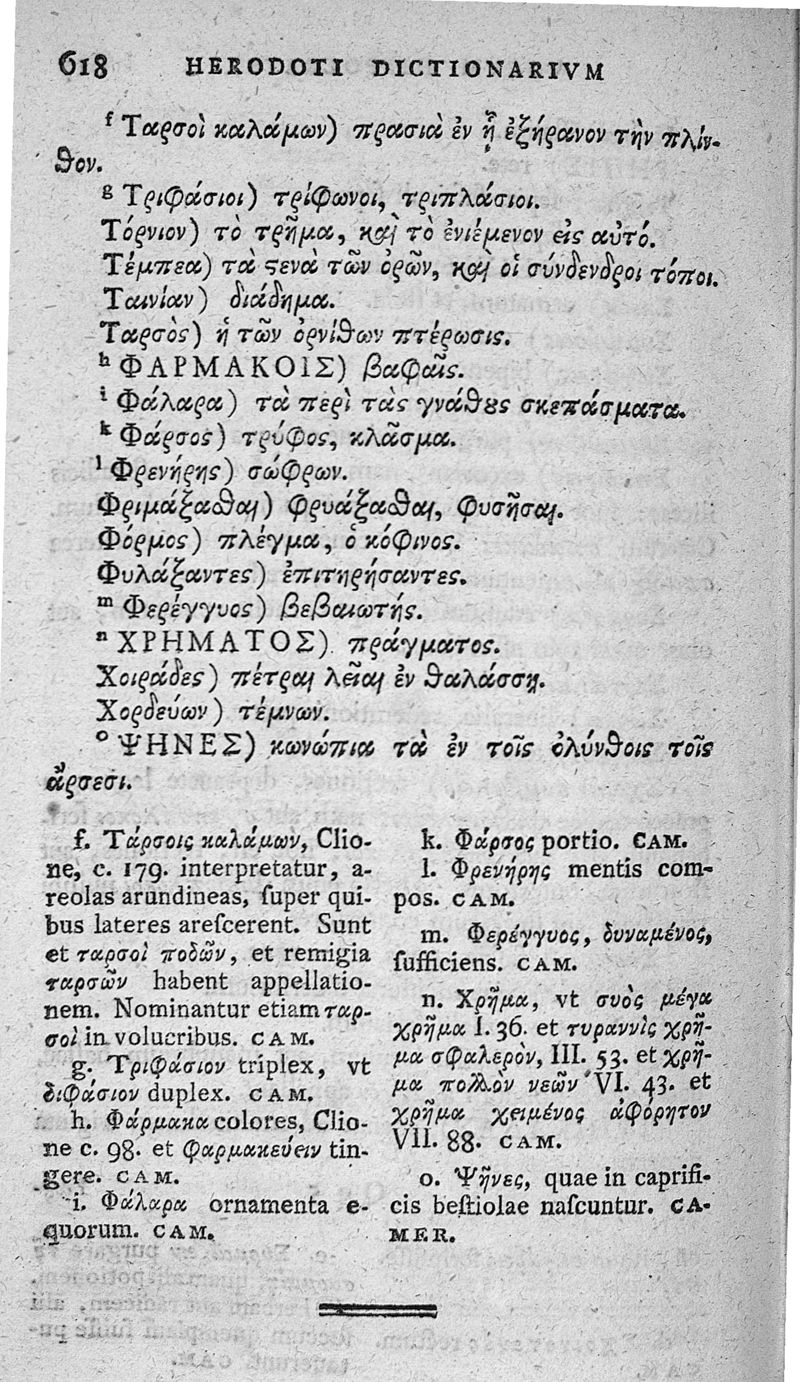 618 HERODOTI DICTIONARIVM
f Ταρσοὶ καλάμων) πρασιὰ ἐν ᾗ ἐξήρανον τὴν πλίν-
θον.
g Τριφάσιοι) τρίφωνοι, τριπλάσιοι.
Τόρνιον) τὸ τρῆμα, καὶ τὸ ἐνιέμενον εἰς αὐτό.
Τέμπεα) τὰ ϛενὰ τῶν ὀρῶν, καὶ οἱ σύνδενδροι τόποι.
Ταινίαν) διάδημα.
Ταρσὸς) ἡ τῶν ὀρνίθων πτέρωσις.
h ΦΑΡΜΑΚΟΙΣ) βαφαῖς.
i Φάλαρα) τὰ περὶ τὰς γνάθους σκεπάσματα.
k Φάρσος) τρύφος, κλᾶσμα.
l Φρενήρης) σώφρων.
Φριμάξασθαι) φρυάξασθαι, φυσῆσαι.
Φόρμος) πλέγμα, ὁ κόφινος.
Φυλάξαντες) ἐπιτηρήσαντες.
m Φερέγγυος) βεβαιωτής.
n ΧΡΗΜΑΤΟΣ) πράγματος.
Χοιράδες) πέτραι λεῖαι ἐν θαλάσσῃ.
Χορδεύων) τέμνων.
o ΨΗΝΕΣ) κωνώπια τὰ ἐν τοῖς ὀλύνθοις τοῖς
ἄρσεσι.
f. Τάρσοις καλάμων, Clio-
ne, c. 179. interpretatur, a-
reolas arundineas, ſuper qui-
bus lateres areſcerent. Sunt
et ταρσοὶ ποδῶν, et remigia
ταρσῶν habent appellatio-
nem. Nominantur etiam ταρ-
σοὶ in volucribus. CAM.
g. Τριφάσιον triplex, vt
διφάσιον duplex. CAM.
h. Φάρμακα colores, Clio-
ne c. 98. et φαρμακεύειν tin-
gere. CAM.
i. Φάλαρα ornamenta e-
quorum. CAM.
k. Φάρσος portio. CAM.
l. Φρενήρης mentis com-
pos. CAM.
m. Φερέγγυος, δυναμένος,
ſufficiens. CAM.
n. Χρῆμα, vt συὸς μέγα
χρῆμα I. 36. et τυραννὶς χρῆ-
μα σφαλερὸν, III. 53. et χρῆ-
μα πολλὸν νεῶν VI. 43. et
χρῆμα χειμένος ἀφόρητον
VII. 88. CAM.
o. Ψῆνες, quae in caprifi-
cis beſtiolae naſcuntur. CA-
MER.